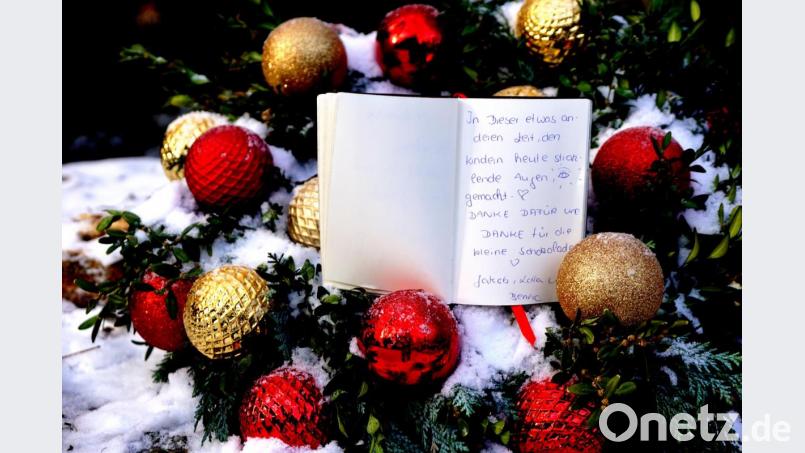 In Dieser etwas an-
deren Zeit, den
Kindern heute strah-
lende Augen
gemacht.
DANKE DAFÜR und
DANKE für die
kleine Schokolade
Jakob, Luisa u
Benno
Onetz.de